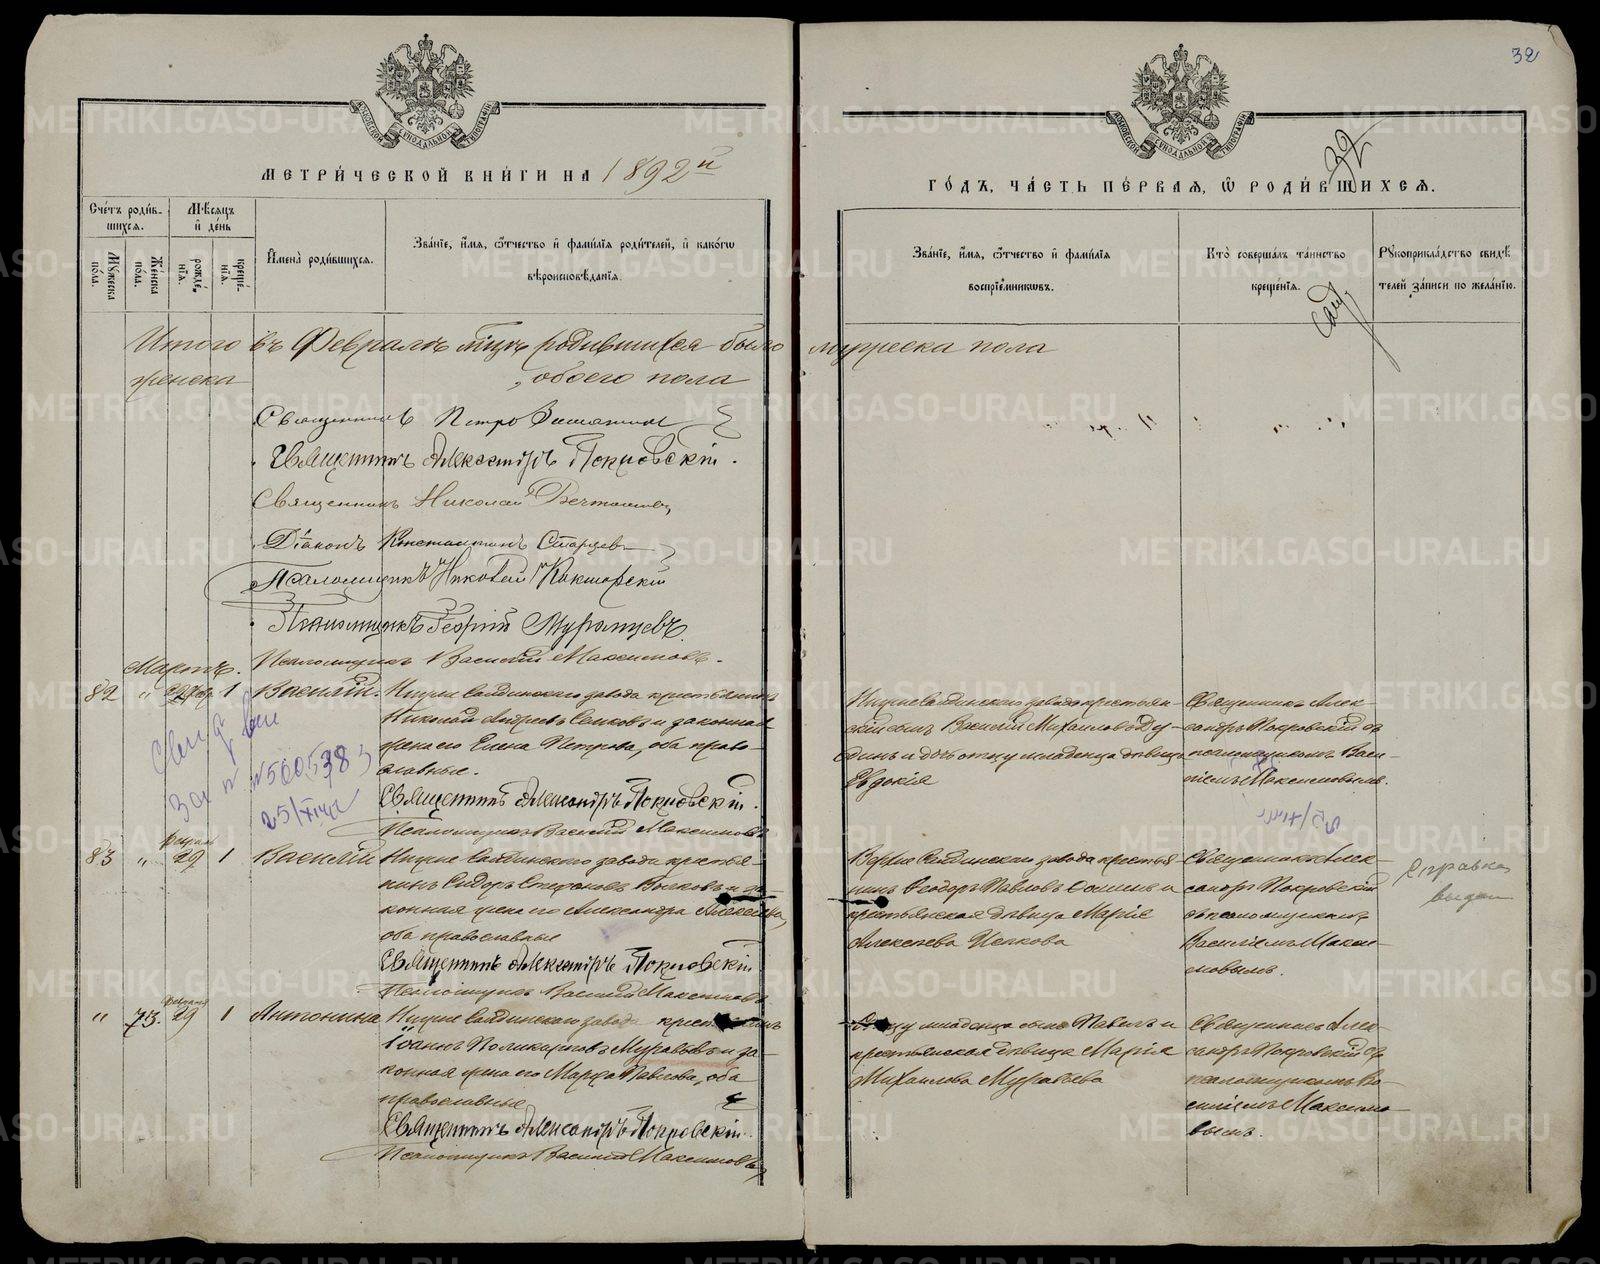 32
МЕТРИ́ЧЕСКОЙ КНИ́ГИ НА 1892й
ГО́ДЪ, ЧА́СТЬ ПЕ́РВАЯ, Ѡ РОДИ́ВШИХСЯ.
32
Сче́тъ роди́в-
шихся.
Мꙋжеска по́ла.
Же́нска по́ла.
Мѣ́сяцъ
и де́нь
рожде́нїя.
креще́нїя.
Имена̀ роди́вшихся.
Зва́нїе, и́мя, ѻ҆́тчество и фами́лїя роди́телей, и како́гѡ
вѣроисповѣ́данїя.
Зва́нїе, и́мя, ѻ҆́тчество и фами́лїя
воспрїе́мникѡвъ.
Кто̀ соверша́лъ та́инство
креще́нїя.
Рꙋкоприкла́дство свидѣ́
телей за́писи по жела́нїю.
Итого въ Февралѣ мцѣ родившихся было мужеска пола
женска , обоего пола
Священникъ Петръ
Священникъ Александръ Покровскій.
Священникъ Николай
Діаконъ Константинъ Старцев
Псаломщикъ Николай
Псаломщикъ Георгій Мурзинцевъ
Псаломщикъ Василій Максимовъ.
Мартъ.
82 " 29 1 Василій. Нижне Салдинскаго завода крестьянинъ
Николай Андреевъ и законная
жена его Елена Петрова, оба право-
славные.
Священникъ Александръ Покровскій.
Псаломщикъ Василій Максимовъ
Нижне Салдинскаго завода крестьян-
скій сынъ Василій Михаиловъ
и дочь отцу младенца дѣвица
Евдокія
Священникъ Алек-
сандръ Покровскій съ
псаломщикомъ Васи-
ліемъ Максимовымъ.
№500538
25/
83 " Февраля 29 1 Василій Нижне Салдинскаго завода крестья-
нинъ Сидоръ Стефановъ Волковъ и за-
конная жена его Александра Алексѣева,
оба православные
Священникъ Александръ Покровскій
Псаломщикъ Василій Максимовъ
Верхне Салдинскаго завода крестья-
нинъ Ѳеодоръ Павловъ и
крестьянская дѣвица Марія
Алексѣева
Священникъ Алек-
сандръ Покровскій
съ псаломщикомъ
Василіемъ Макси-
мовымъ.
Справка
выдан
" 73. Февраля 29 1 Антонина Нижне Салдинскаго завода крестьянинъ
Іоаннъ Поликарповъ Муравьевъ и за-
конная жена его Марѳа Павлова, оба
православные
Священникъ Александръ Покровскій.
Псаломщикъ Василій Максимовъ
Отцу младенца сынъ Павелъ и
крестьянская дѣвица Марія
Михаилова Муравьева
Священникъ Алек-
сандръ Покровскій съ
псаломщикомъ Ва-
силіемъ Максимо-
вымъ.
METRIKI.GASO-URAL.RU